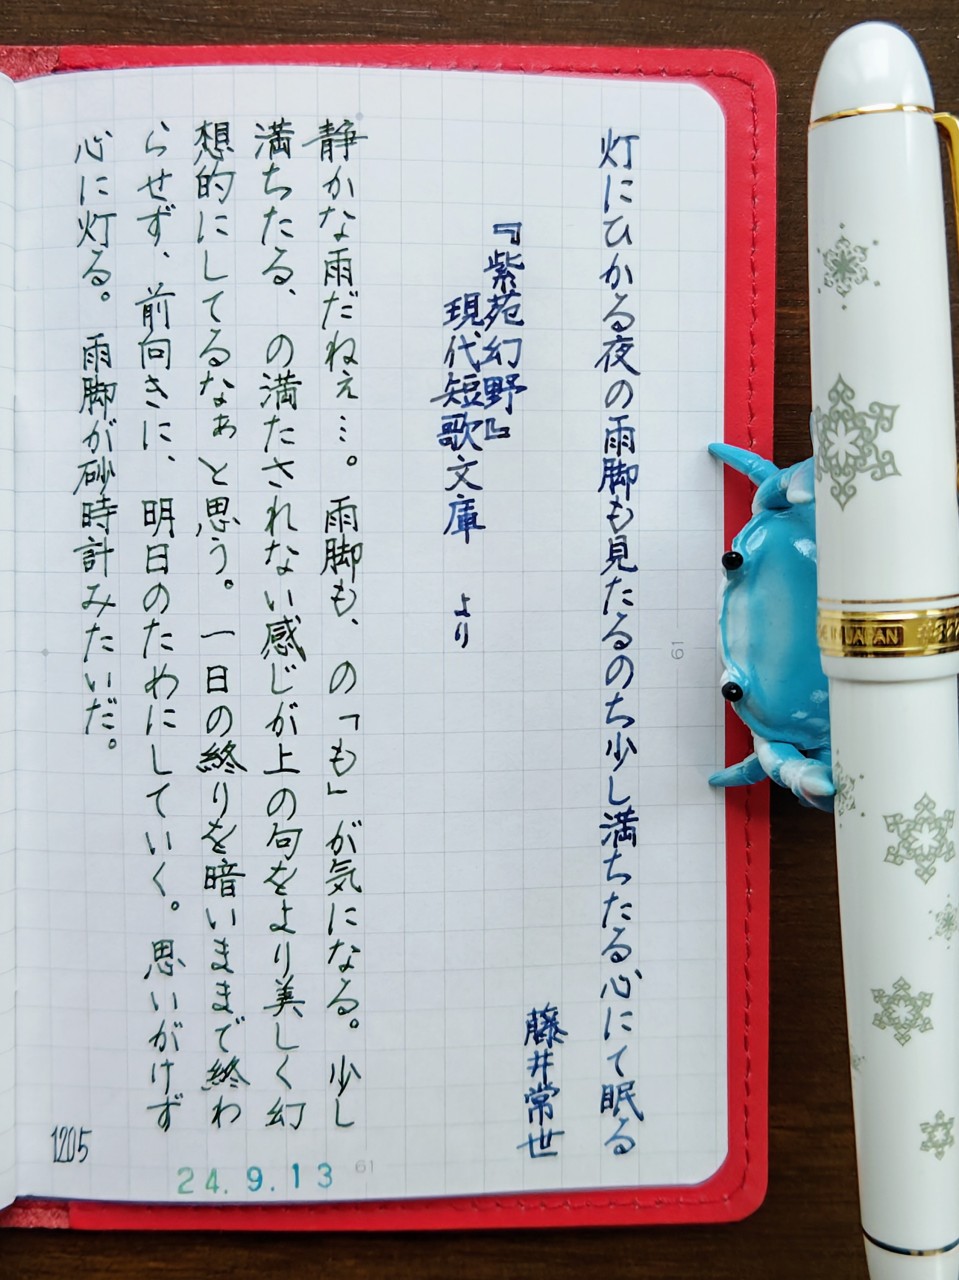 灯にひかる夜の雨脚も見たるのち少し満ちたる心にて眠る
藤井常世
『紫苑幻野』
現代短歌文庫 より
静かな雨だねぇ…。雨脚も、の「も」が気になる。少し
満ちたる、の満たされない感じが上の句をより美しく幻
想的にしてるなぁと思う。一日の終りを暗いままで終わ
らせず、前向きに、明日のためにしていく。思いがけず
心に灯る。雨脚が砂時計みたいだ。
1205
24.9.13
61
61
JAPAN